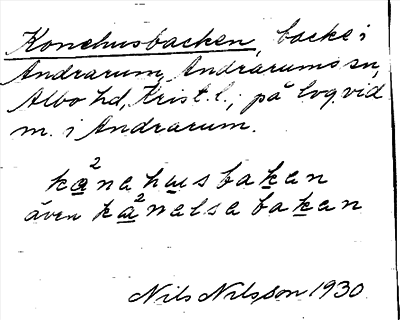 Konehusbacken, backe i
Andrarum, Andrarums sn,
Albo hd, Krist. l.; på log. vid
m. i Andrarum.
kånahusbakan
även kånalsabakan
Nils Nilsson 1930